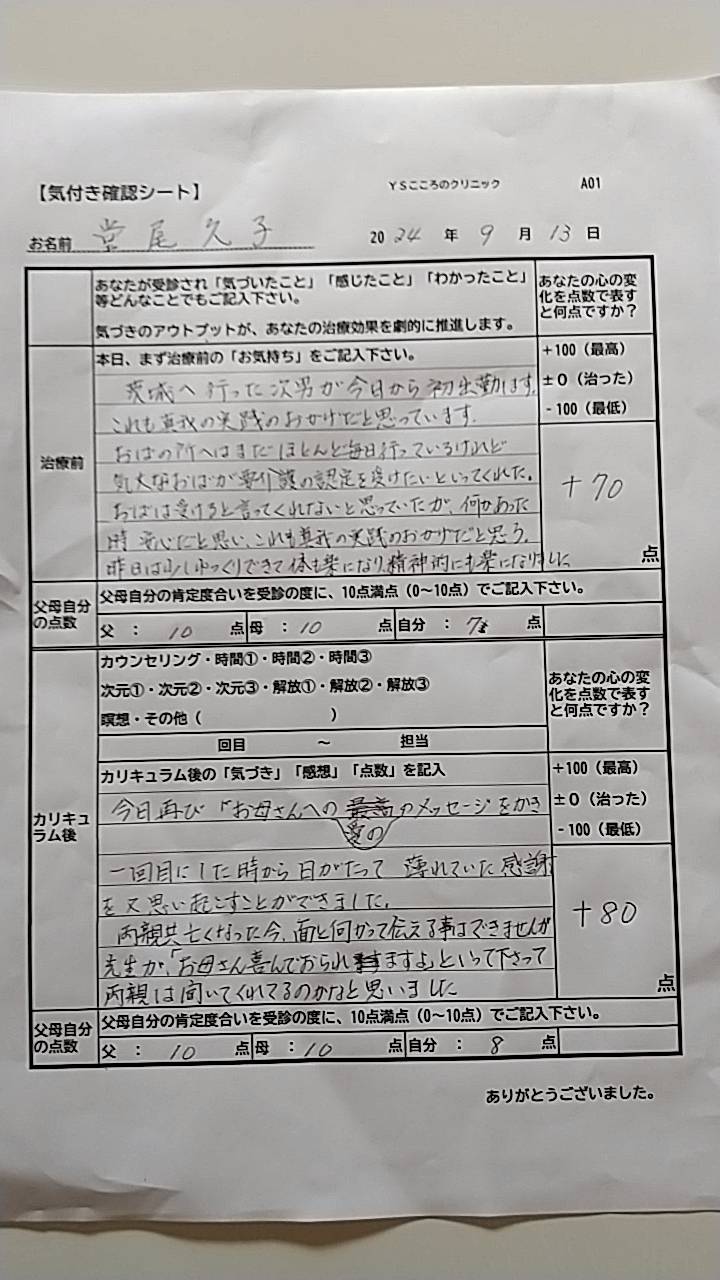 【気付き確認シート】 YSこころのクリニック A01
お名前 堂尾久子 2024年9月13日
あなたが受診され「気づいたこと」「感じたこと」「わかったこと」等どんなことでもご記入下さい。
気づきのアウトプットが、あなたの治療効果を劇的に推進します。
あなたの心の変化を点数で表すと何点ですか？
治療前
本日、まず治療前の「お気持ち」をご記入下さい。
+100（最高）
±0（治った）
-100（最低）
茨城へ行った次男が今日から初出勤です。
これも真我の実践のおかげだと思っています。
おばの所へはまだほとんど毎日行っているけれど
気丈なおばが要介護の認定を受けたいといってくれた。
おばは受けると言ってくれないと思っていたが、何かあった
時安心だと思い、これも真我の実践のおかげだと思う。
昨日は少しゆっくりできて体も楽になり精神的にも楽になりました
+70点
父母自分の点数
父母自分の肯定度合いを受診の度に、10点満点（0～10点）でご記入下さい。
父：10点 母：10点 自分：7点
カリキュラム後
カウンセリング・時間①・時間②・時間③
次元①・次元②・次元③・解放①・解放②・解放③
瞑想・その他（ ）
回目 ～ 担当
あなたの心の変化を点数で表すと何点ですか？
カリキュラム後の「気づき」「感想」「点数」を記入
+100（最高）
±0（治った）
-100（最低）
今日再び「お母さんへの愛のメッセージをかき
一回目にした時から日がたって 薄れていた感謝
を又思い起こすことができました。
両親共亡くなった今、面と向かって伝える事はできませんが
先生が、「お母さん喜んでおられますよ」といって下さって
両親は聞いてくれてるのかなと思いました
+80点
父母自分の点数
父母自分の肯定度合いを受診の度に、10点満点（0～10点）でご記入下さい。
父：10点 母：10点 自分：8点
ありがとうございました。